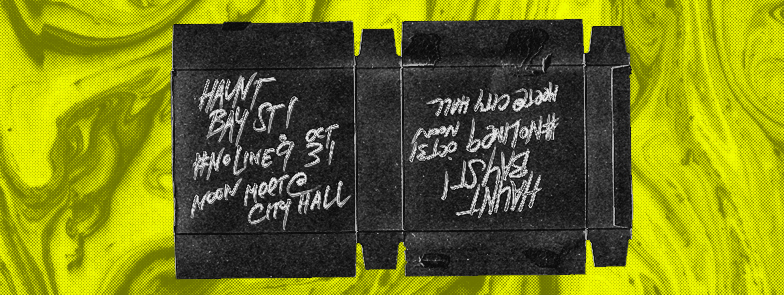 HAUNT
BAY ST!
#NOLINE9 OCT
31
NOON MEET@
CITY HALL
HAUNT
BAY ST!
#NOLINE9 OCT31
NOON
MEET@ CITY HALL